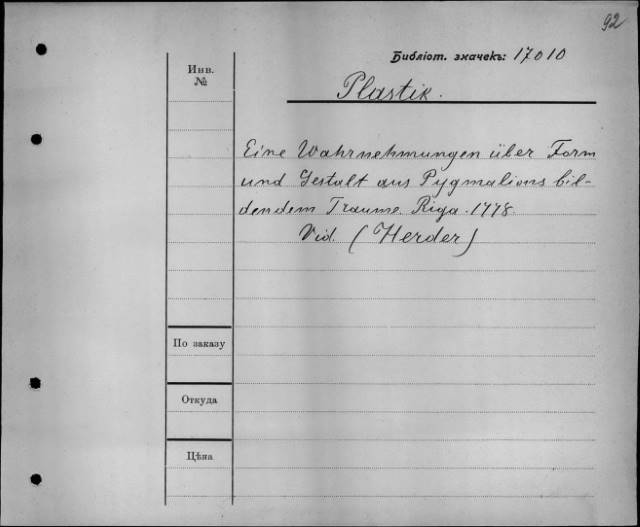 92
Библіот. значекъ: 17010
Инв.
№
Plastik.
Eine Wahrnehmungen über Form
und Gestalt aus Pygmalions bil-
dendem Traume. Riga. 1778.
Vid. (Herder)
По заказу
Откуда
Цѣна